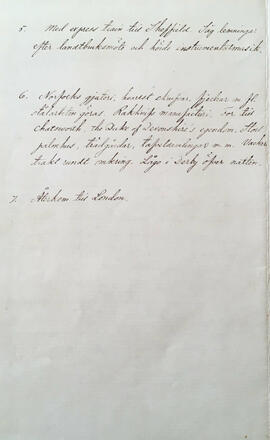 5. Med express train till Sheffield. Såg lemningar
efter landtbruksmöte och hörde instrumentalmusik.
6. Norfolks gjuteri, hvarest skrufvar, fjedrar m. fl.
stålarbeten göras. Rakknifs manufactur. For till
Chatsworth, the Duke of Devonshire's egendom. Slott,
palmhus, trädgårdar, tafvelsamlingar m. m. Vacker
trakt rundt omkring. Lågo i Derby öfver natten.
7. Återkom till London.